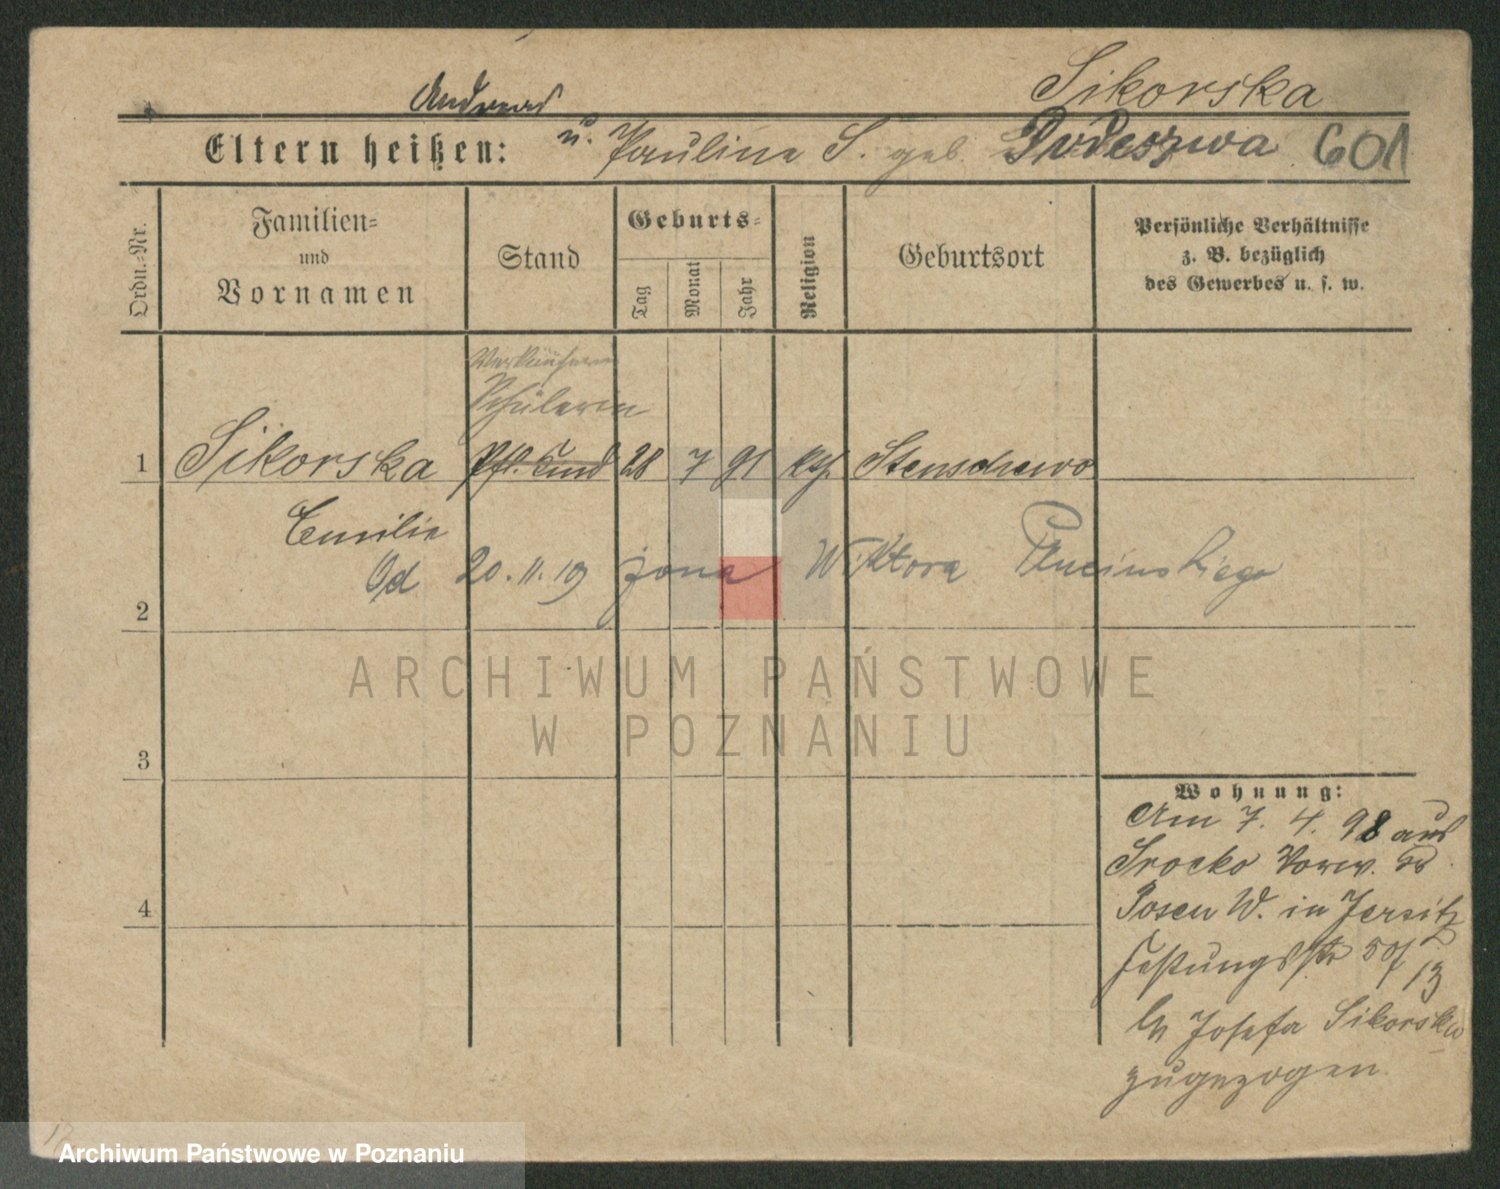 Sikorska
Andreas
Eltern heißen: u. Pauline S. geb. Podeszwa 601
Ordn.-Nr.
Familien-
und
Vornamen
Stand
Geburts-
Tag
Monat
Jahr
Religion
Geburtsort
Persönliche Verhältnisse
z. B. bezüglich
des Gewerbes u. s. w.
Verkäuferin
Schülerin
1 Sikorska Pfl. Kind 28 7 91 kth. Stenschewo
Emilie
Od 20.11.19 żona Wiktora Plucinskiego
2
ARCHIWUM PAŃSTWOWE
W POZNANIU
3
Wohnung:
Am 7. 4. 98 aus
Srocko Vorw. Kr.
Posen W. in Jersitz
Festungsstr 50/13
bei Josefa Sikorska
zugezogen
4
Archiwum Państwowe w Poznaniu